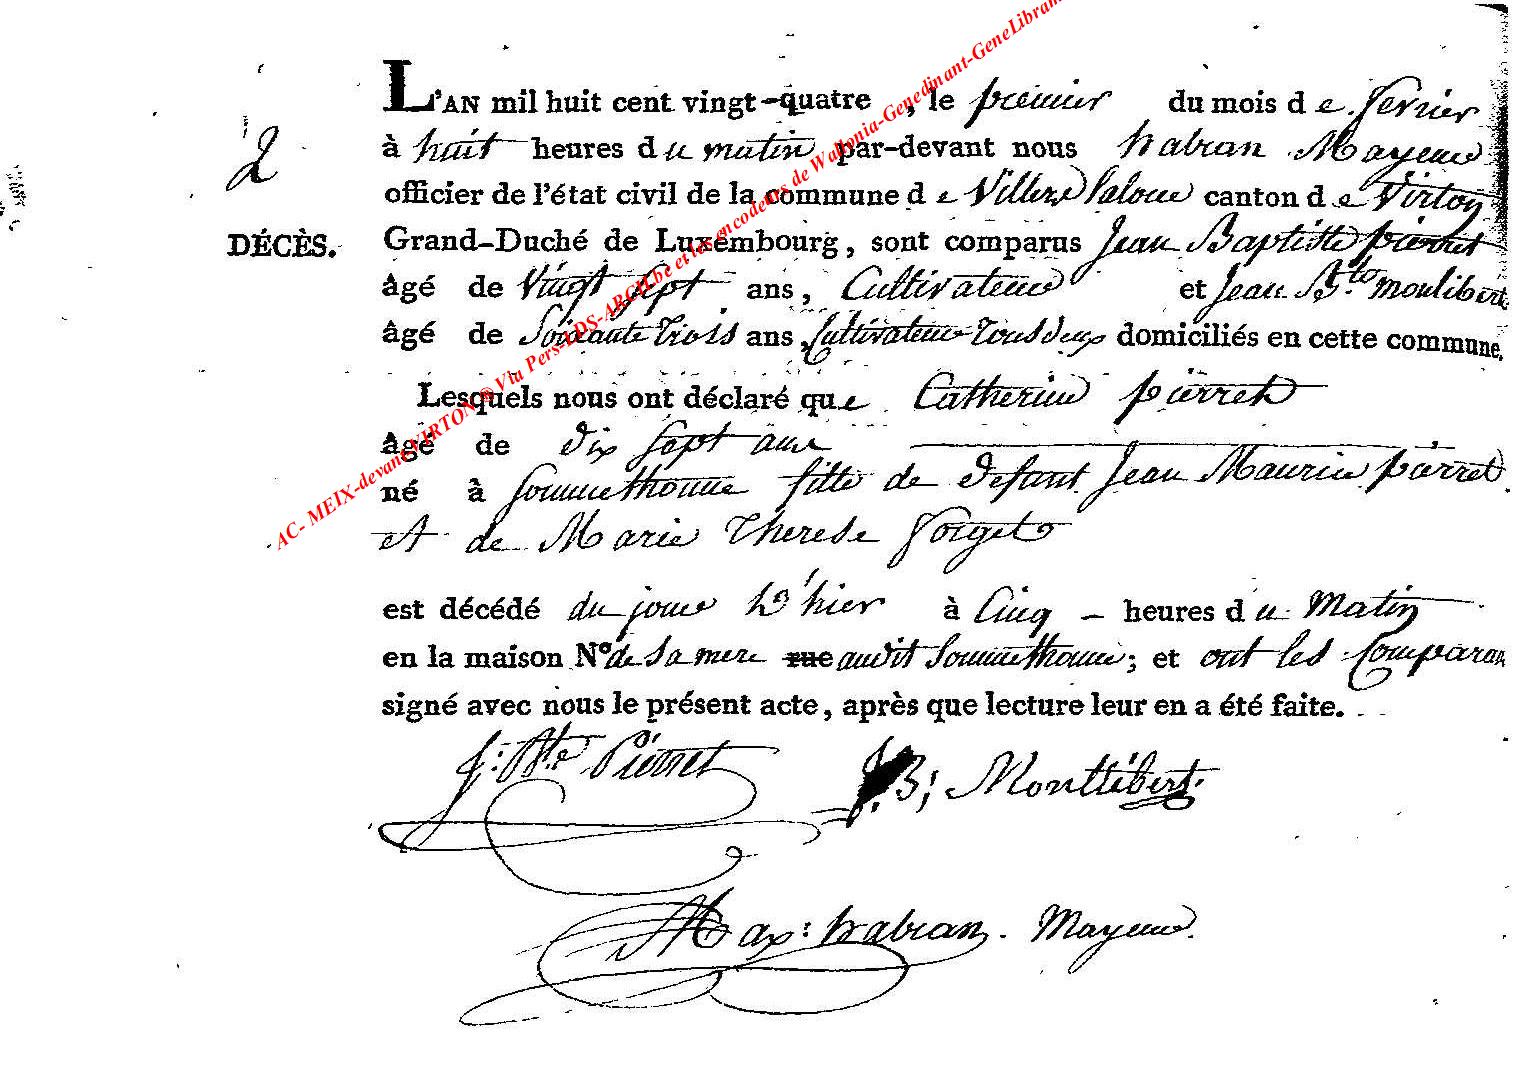 L'AN mil huit cent vingt-quatre, le premier du mois de fevrier
2
à huit heures du matin par-devant nous habran Mayeur
officier de l'état civil de la commune de Villers Laloue canton de Virton
DÉCÈS.
Grand-Duché de Luxembourg, sont comparus Jean Baptiste pierret
âgé de Vingt sept ans, Cultivateur et Jean Bte moulibert
âgé de Soixante Trois ans Cultivateur Tous deux domiciliés en cette commune.
Lesquels nous ont déclaré que Catherine pierret
âgé de dix sept ans
né à Sommethonne fille de defunt Jean Maurice pierret
et de Marie Therese Gorget
est décédé du jour d'hier à Cinq - heures du Matin
en la maison No de Sa mere rue audit Sommethonne; et ont les Comparan
signé avec nous le présent acte, après que lecture leur en a été faite.
J: Bte Pierret J. B; Montlibert.
Max: habran. Mayeur.
AC- MEIX-devant-VIRTON ® Via Pers-LDS-ARCH.be et les encodeurs de Wallonia-Genedinant-GeneLibran